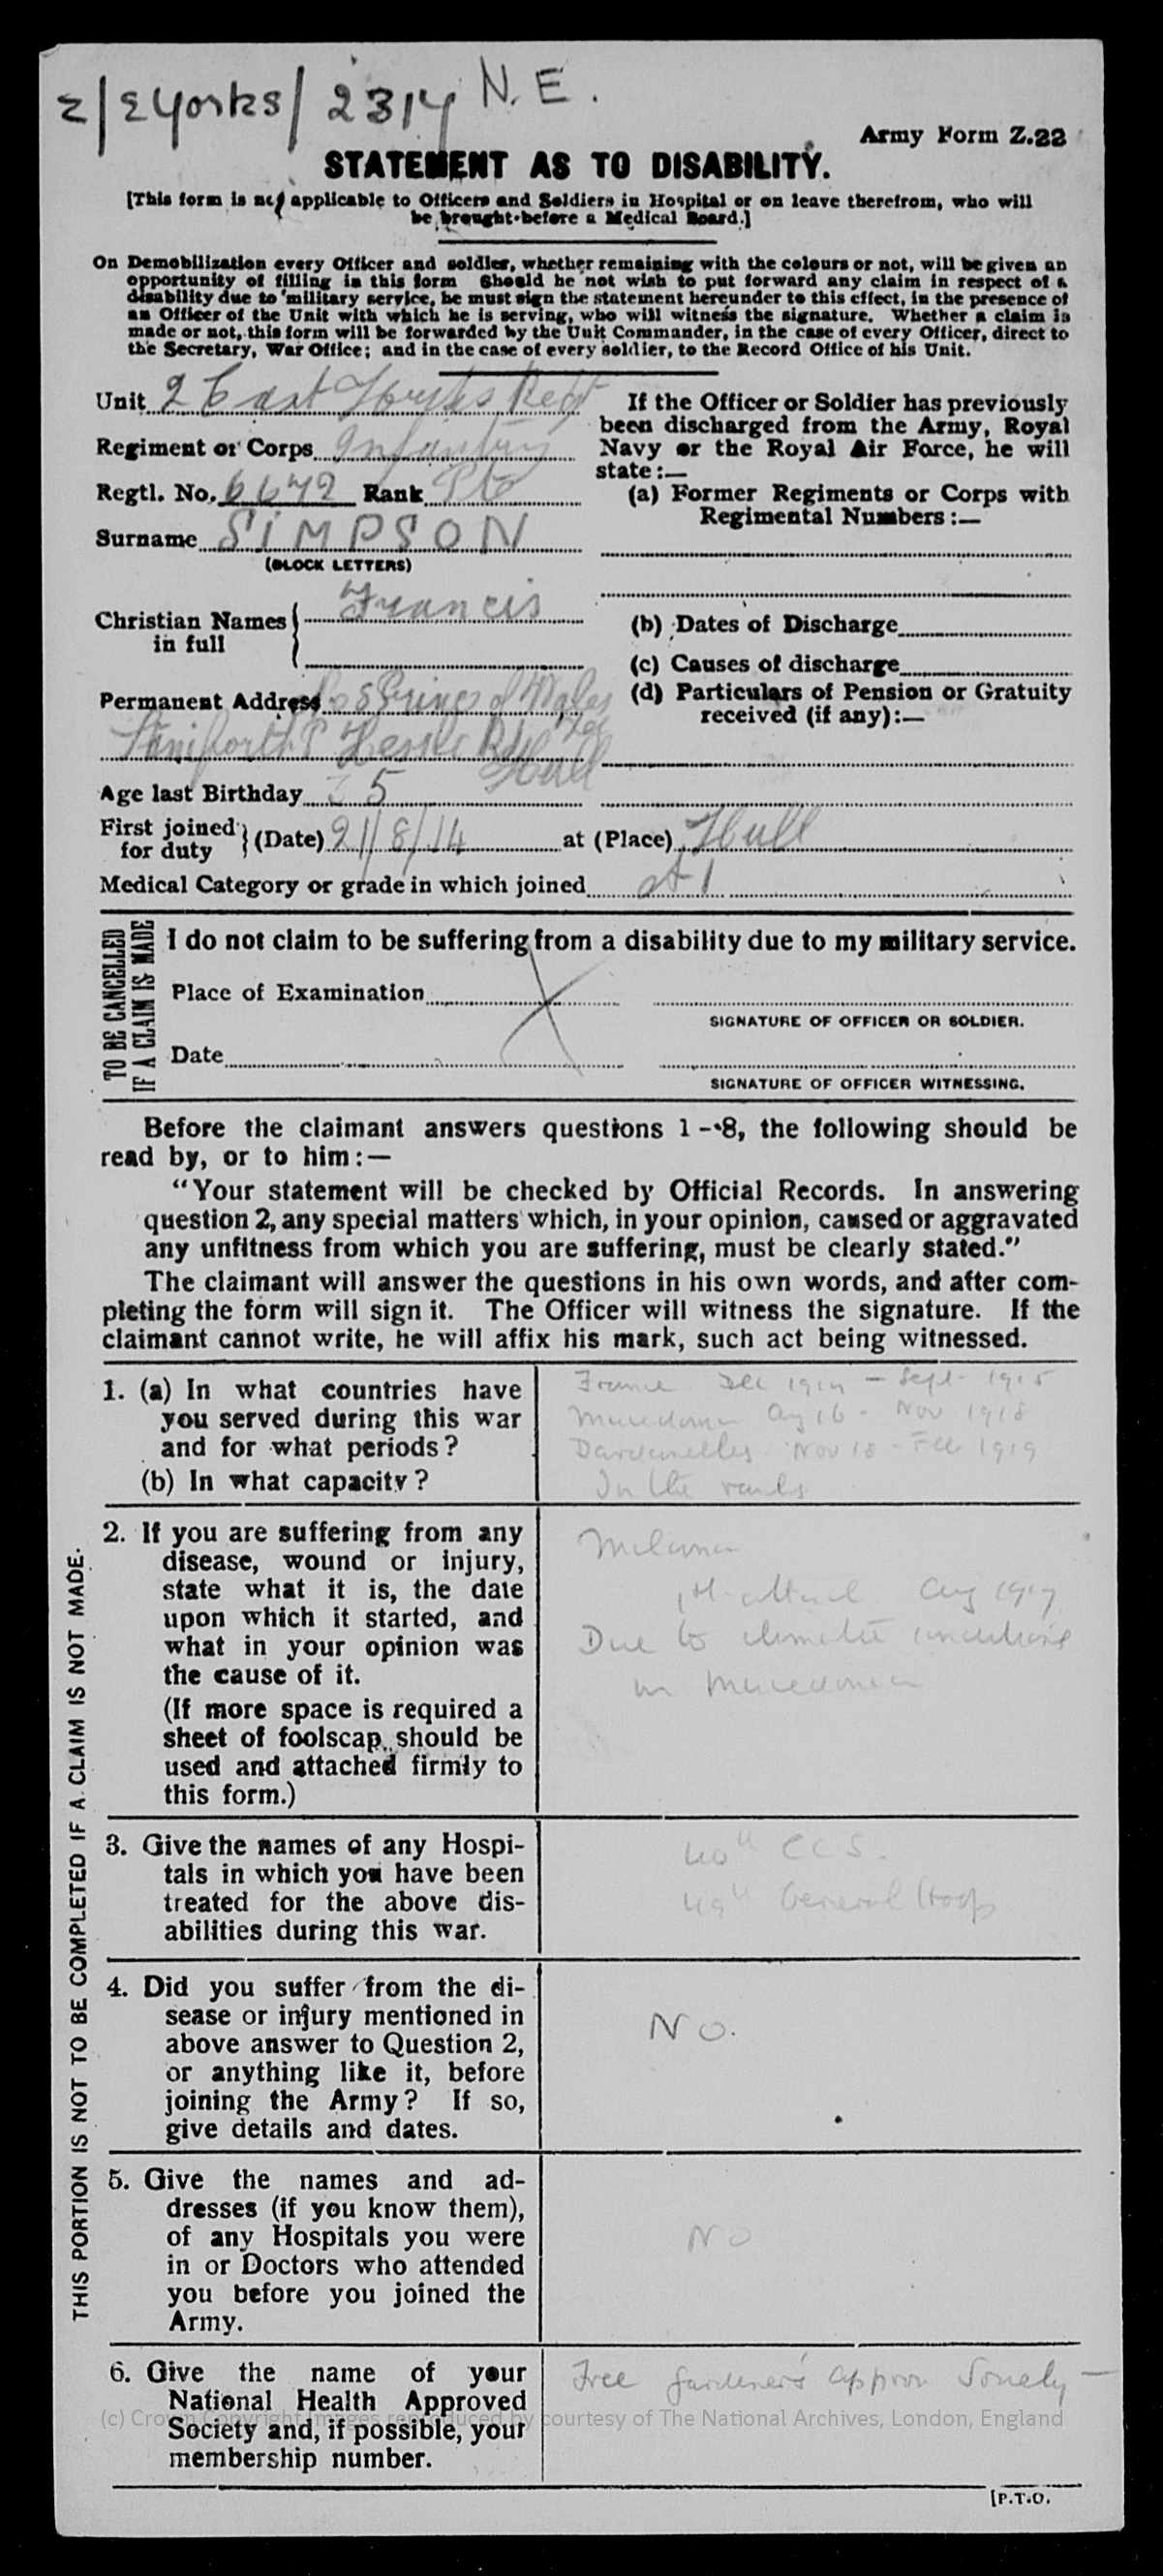 Z/EYorks/2314 N.E.
Army Form Z.22
STATEMENT AS TO DISABILITY.
[This form is not applicable to Officers and Soldiers in Hospital or on leave therefrom, who will
be brought before a Medical Board.]
On Demobilization every Officer and soldier, whether remaining with the colours or not, will be given an
opportunity of filling in this form Should he not wish to put forward any claim in respect of a
disability due to military service, he must sign the statement hereunder to this effect, in the presence of
an Officer of the Unit with which he is serving, who will witness the signature. Whether a claim is
made or not, this form will be forwarded by the Unit Commander, in the case of every Officer, direct to
the Secretary, War Office; and in the case of every soldier, to the Record Office of his Unit.
Unit 2 East Yorks Regt
Regiment or Corps Infantry
Regtl. No. 6672 Rank Pte
Surname SIMPSON
(BLOCK LETTERS)
Christian Names
in full
Francis
Permanent Address Prince of Wales
Hessle Rd
Hull
Age last Birthday 35
First joined for duty (Date) 21/8/14 at (Place) Hull
Medical Category or grade in which joined A1
If the Officer or Soldier has previously
been discharged from the Army, Royal
Navy or the Royal Air Force, he will
state:—
(a) Former Regiments or Corps with
Regimental Numbers:—
(b) Dates of Discharge
(c) Causes of discharge
(d) Particulars of Pension or Gratuity
received (if any):—
TO BE CANCELLED
IF A CLAIM IS MADE
I do not claim to be suffering from a disability due to my military service.
Place of Examination
SIGNATURE OF OFFICER OR SOLDIER.
Date
SIGNATURE OF OFFICER WITNESSING.
Before the claimant answers questions 1-8, the following should be
read by, or to him:—
"Your statement will be checked by Official Records. In answering
question 2, any special matters which, in your opinion, caused or aggravated
any unfitness from which you are suffering, must be clearly stated."
The claimant will answer the questions in his own words, and after com-
pleting the form will sign it. The Officer will witness the signature. If the
claimant cannot write, he will affix his mark, such act being witnessed.
THIS PORTION IS NOT TO BE COMPLETED IF A CLAIM IS NOT MADE.
1. (a) In what countries have
you served during this war
and for what periods?
(b) In what capacity?
France Dec 1914 - Sept 1915
Macedonia Aug 16 - Nov 1918
Dardanelles Nov 18 - Feb 1919
In the ranks
2. If you are suffering from any
disease, wound or injury,
state what it is, the date
upon which it started, and
what in your opinion was
the cause of it.
(If more space is required a
sheet of foolscap should be
used and attached firmly to
this form.)
Malaria
1st attack Aug 1917
Due to climatic conditions
in Macedonia
3. Give the names of any Hospi-
tals in which you have been
treated for the above dis-
abilities during this war.
40th CCS.
49th General Hosp
4. Did you suffer from the di-
sease or injury mentioned in
above answer to Question 2,
or anything like it, before
joining the Army? If so,
give details and dates.
No.
5. Give the names and ad-
dresses (if you know them),
of any Hospitals you were
in or Doctors who attended
you before you joined the
Army.
No
6. Give the name of your
National Health Approved
Society and, if possible, your
membership number.
Free Gardeners Approv Society —
(c) Crown Copyright Images reproduced by courtesy of The National Archives, London, England
[P.T.O.